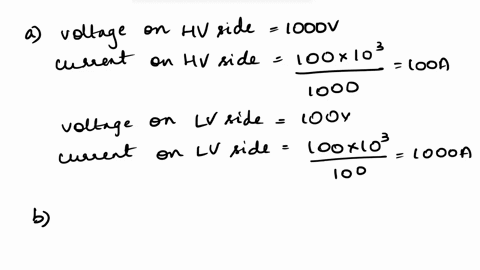 a) voltage on HV side = 1000V
current on HV side = 100×10³ / 1000 = 100A
voltage on LV side = 100V
current on LV side = 100×10³ / 100 = 1000A
b)